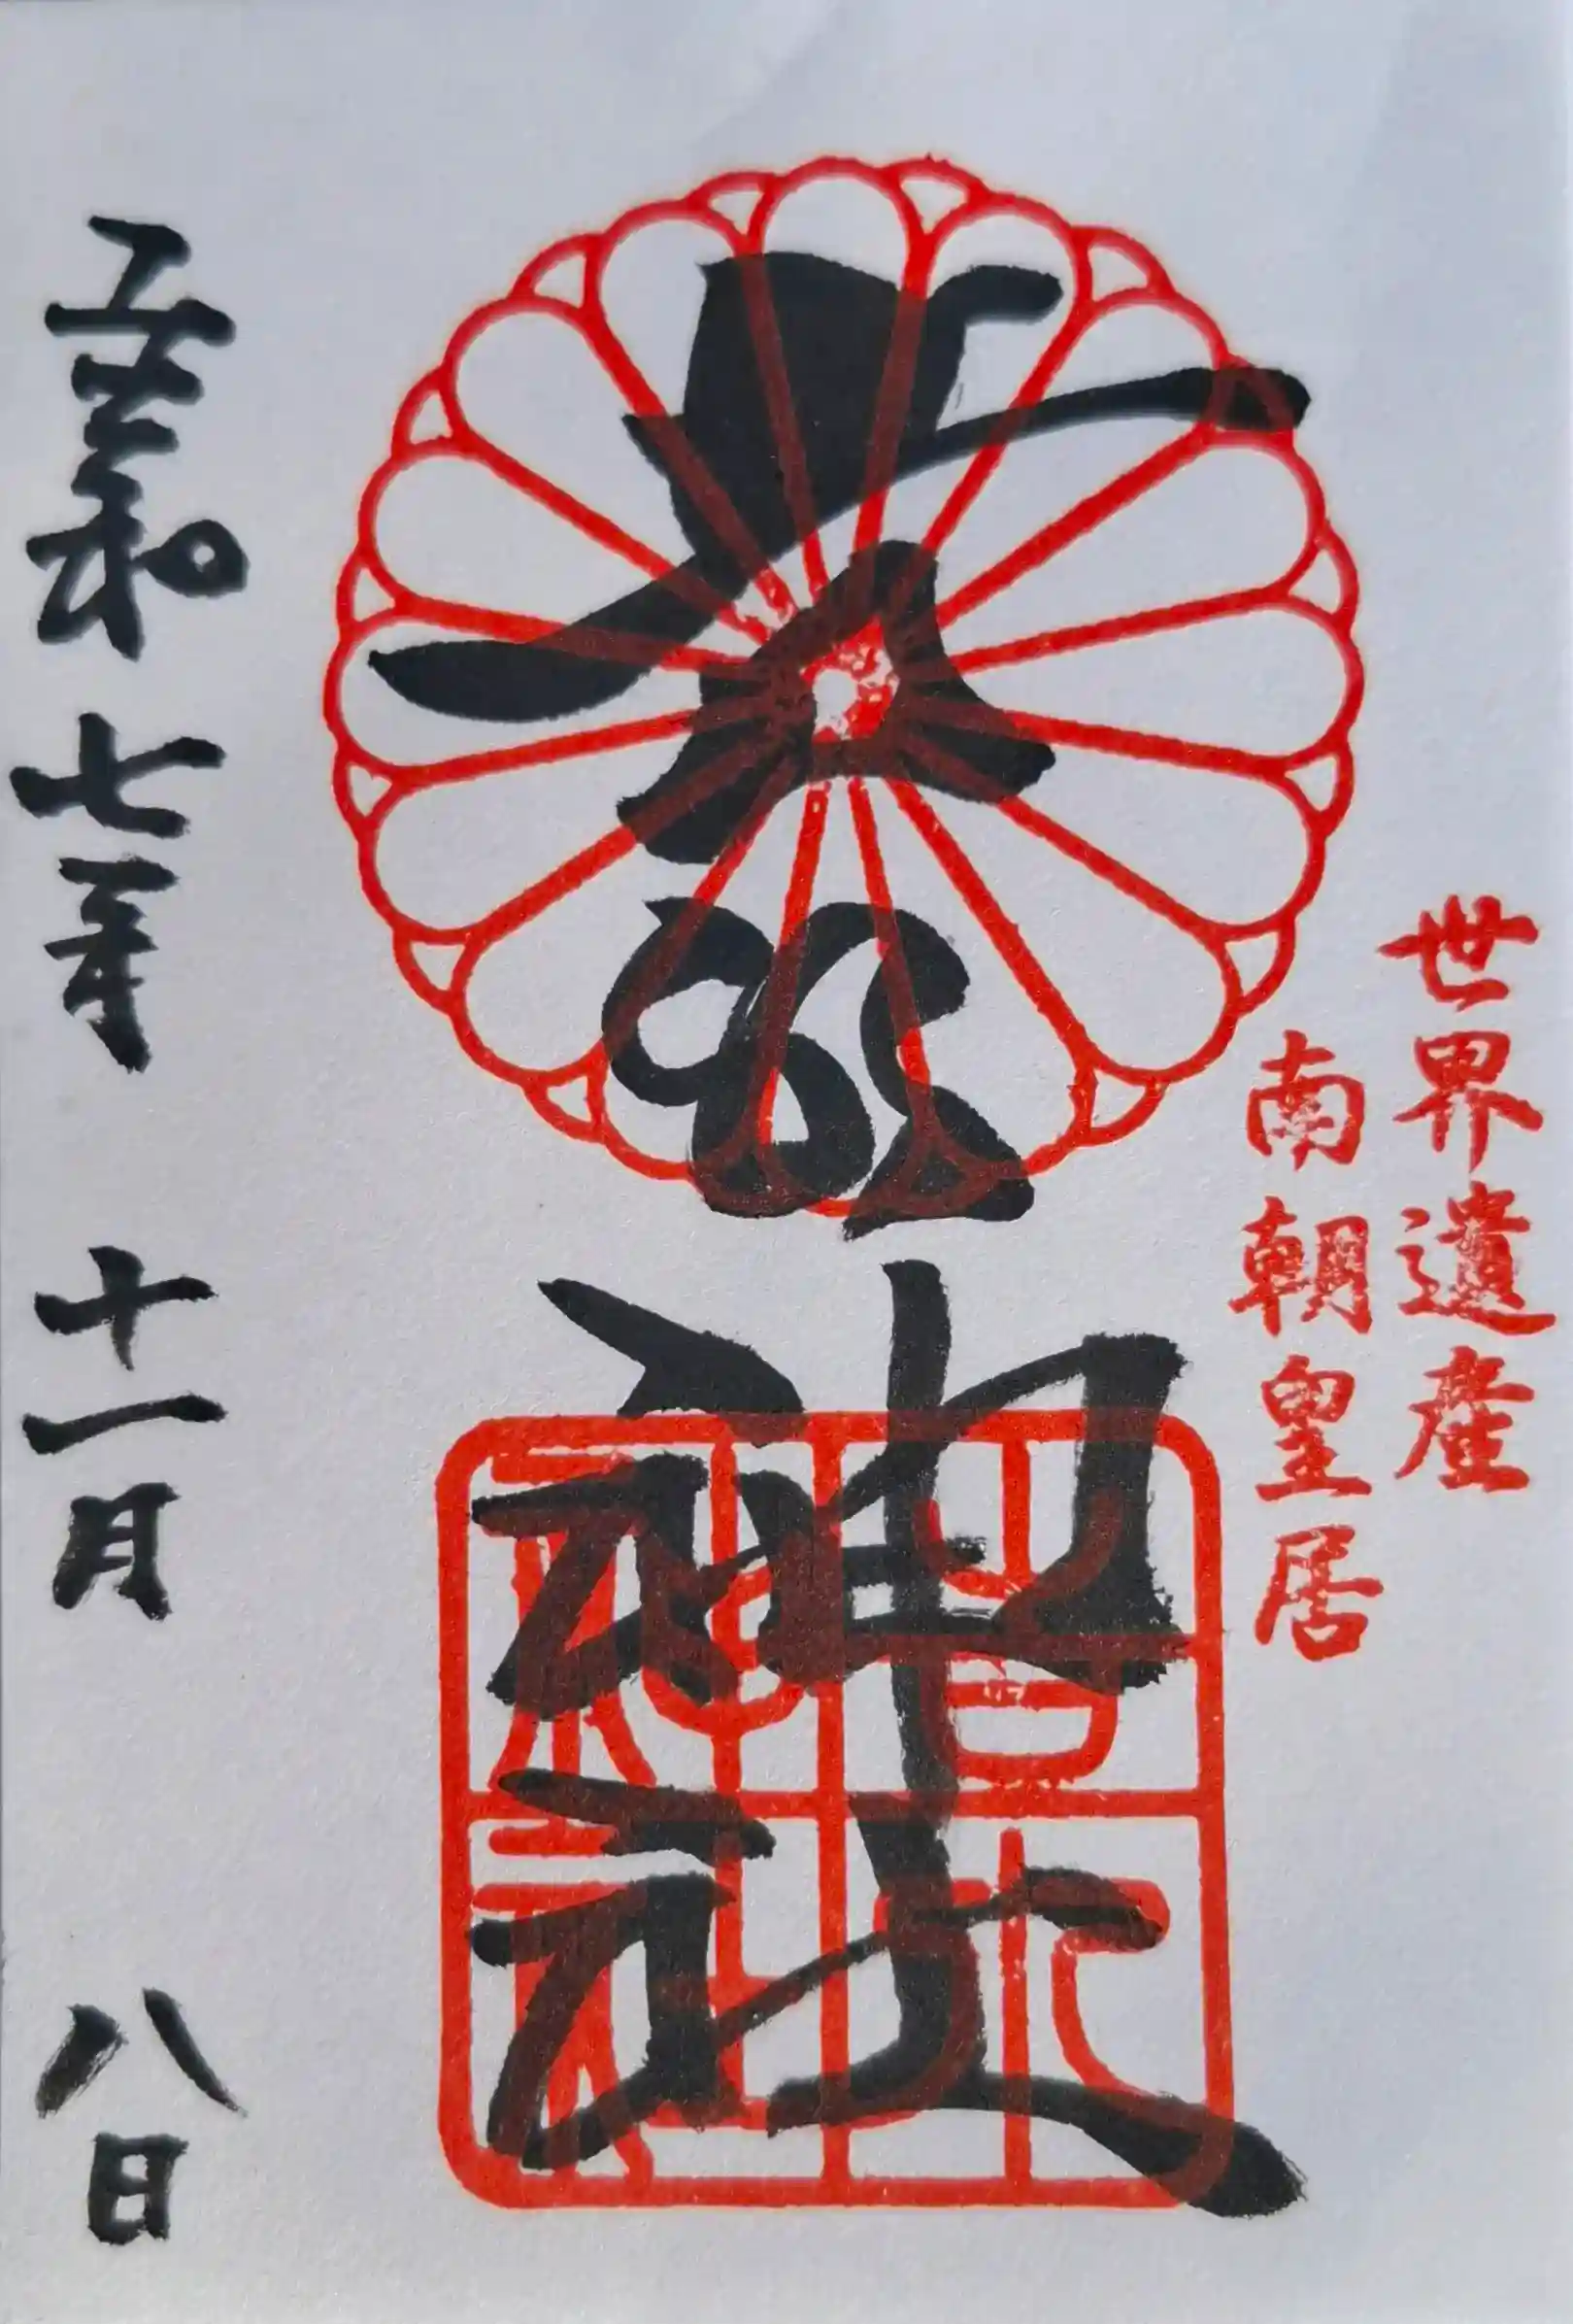 世界遺産
南朝皇居
吉水神社
吉水神社
令和七年 十一月 八日